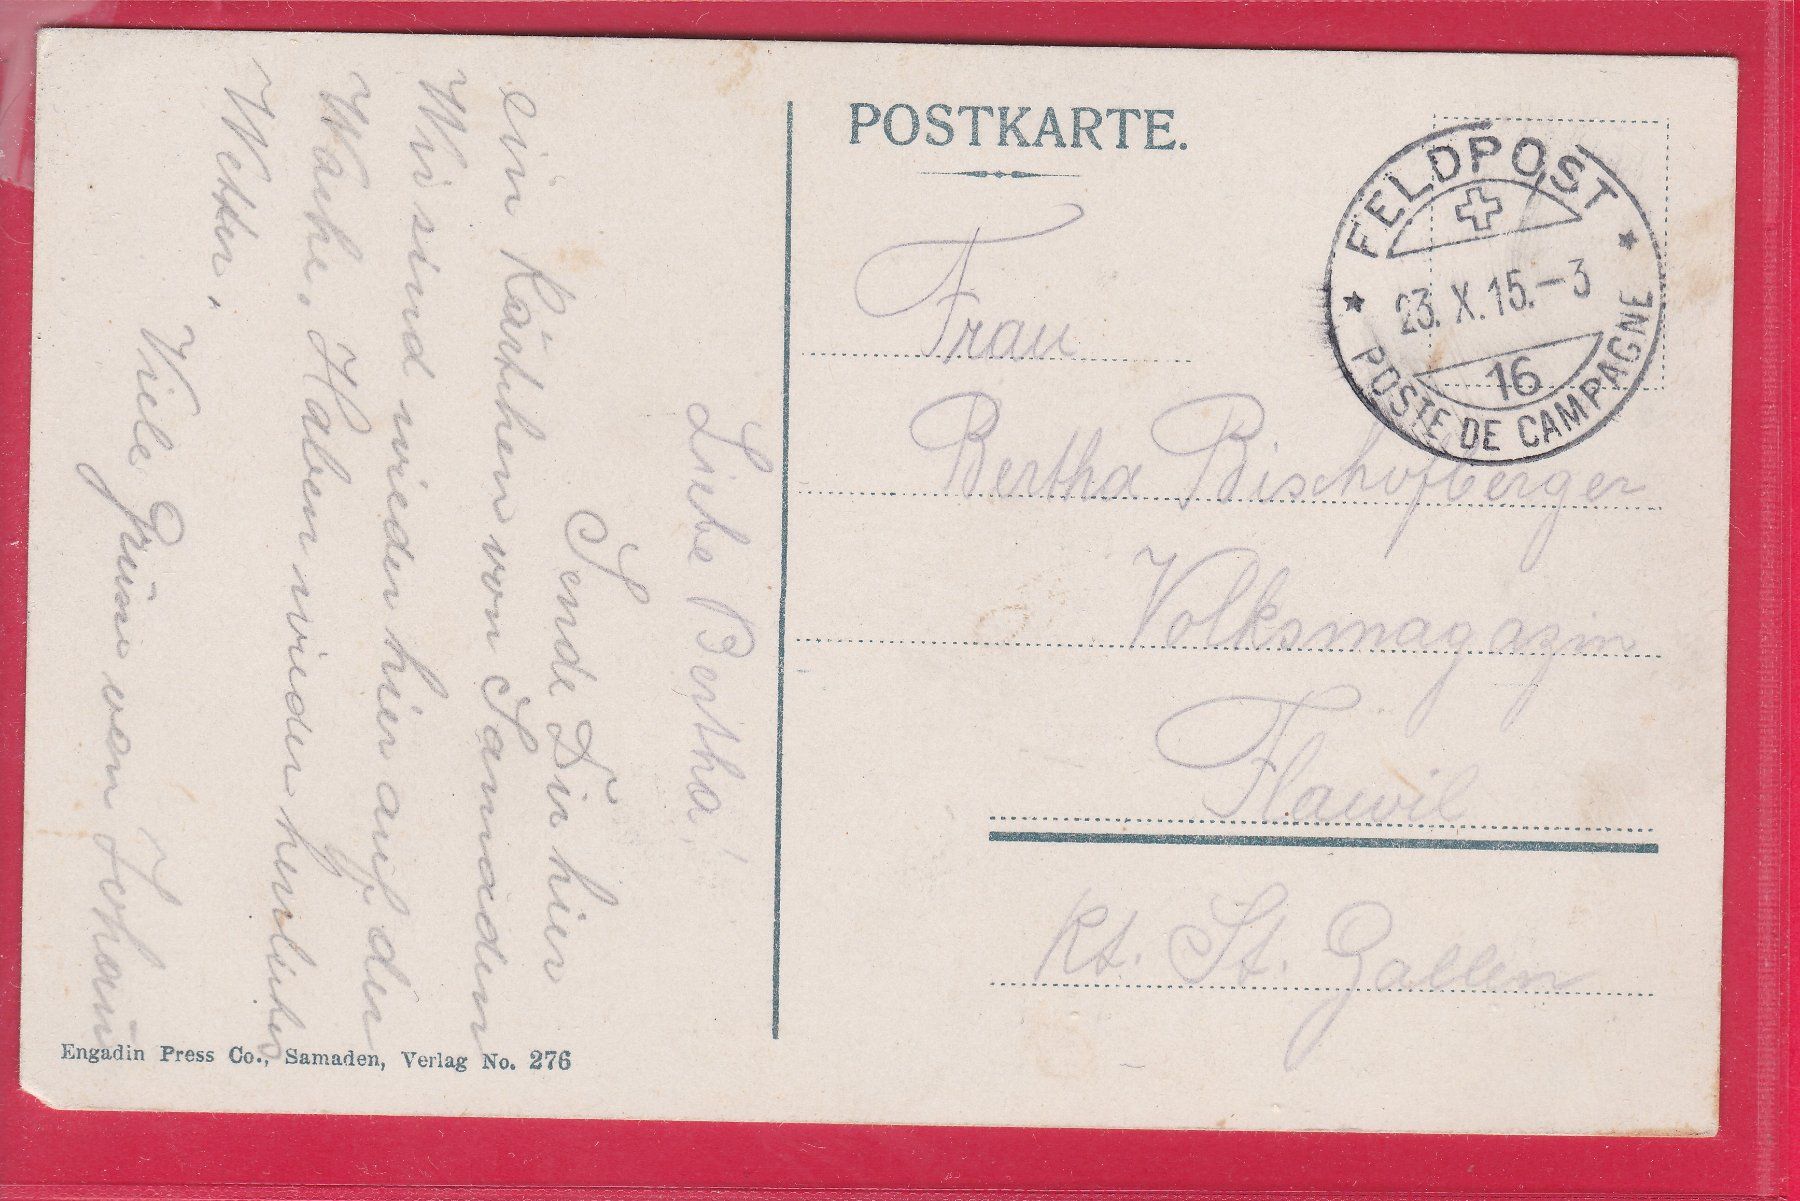 POSTKARTE.
FELDPOST
23. X. 15.–3
16
POSTE DE CAMPAGNE
Frau
Bertha Bischofberger
Volksmagazin
Flawil
Kt. St. Gallen
Liebe Bertha!
Sende Dir hier
ein Kärtchen von Samaden
Wir sind wieder hier auf der
Wache. Haben wieder herliches
Wetter.
Viele Grüsse von Johann
Engadin Press Co., Samaden, Verlag No. 276